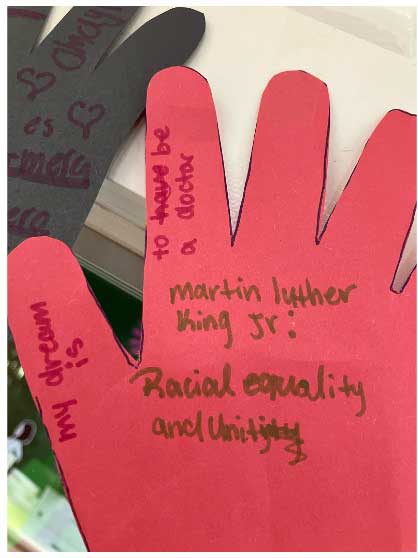 my dream
is
to have be
a doctor
martin luther
King Jr:
Racial equality
and Unity
es